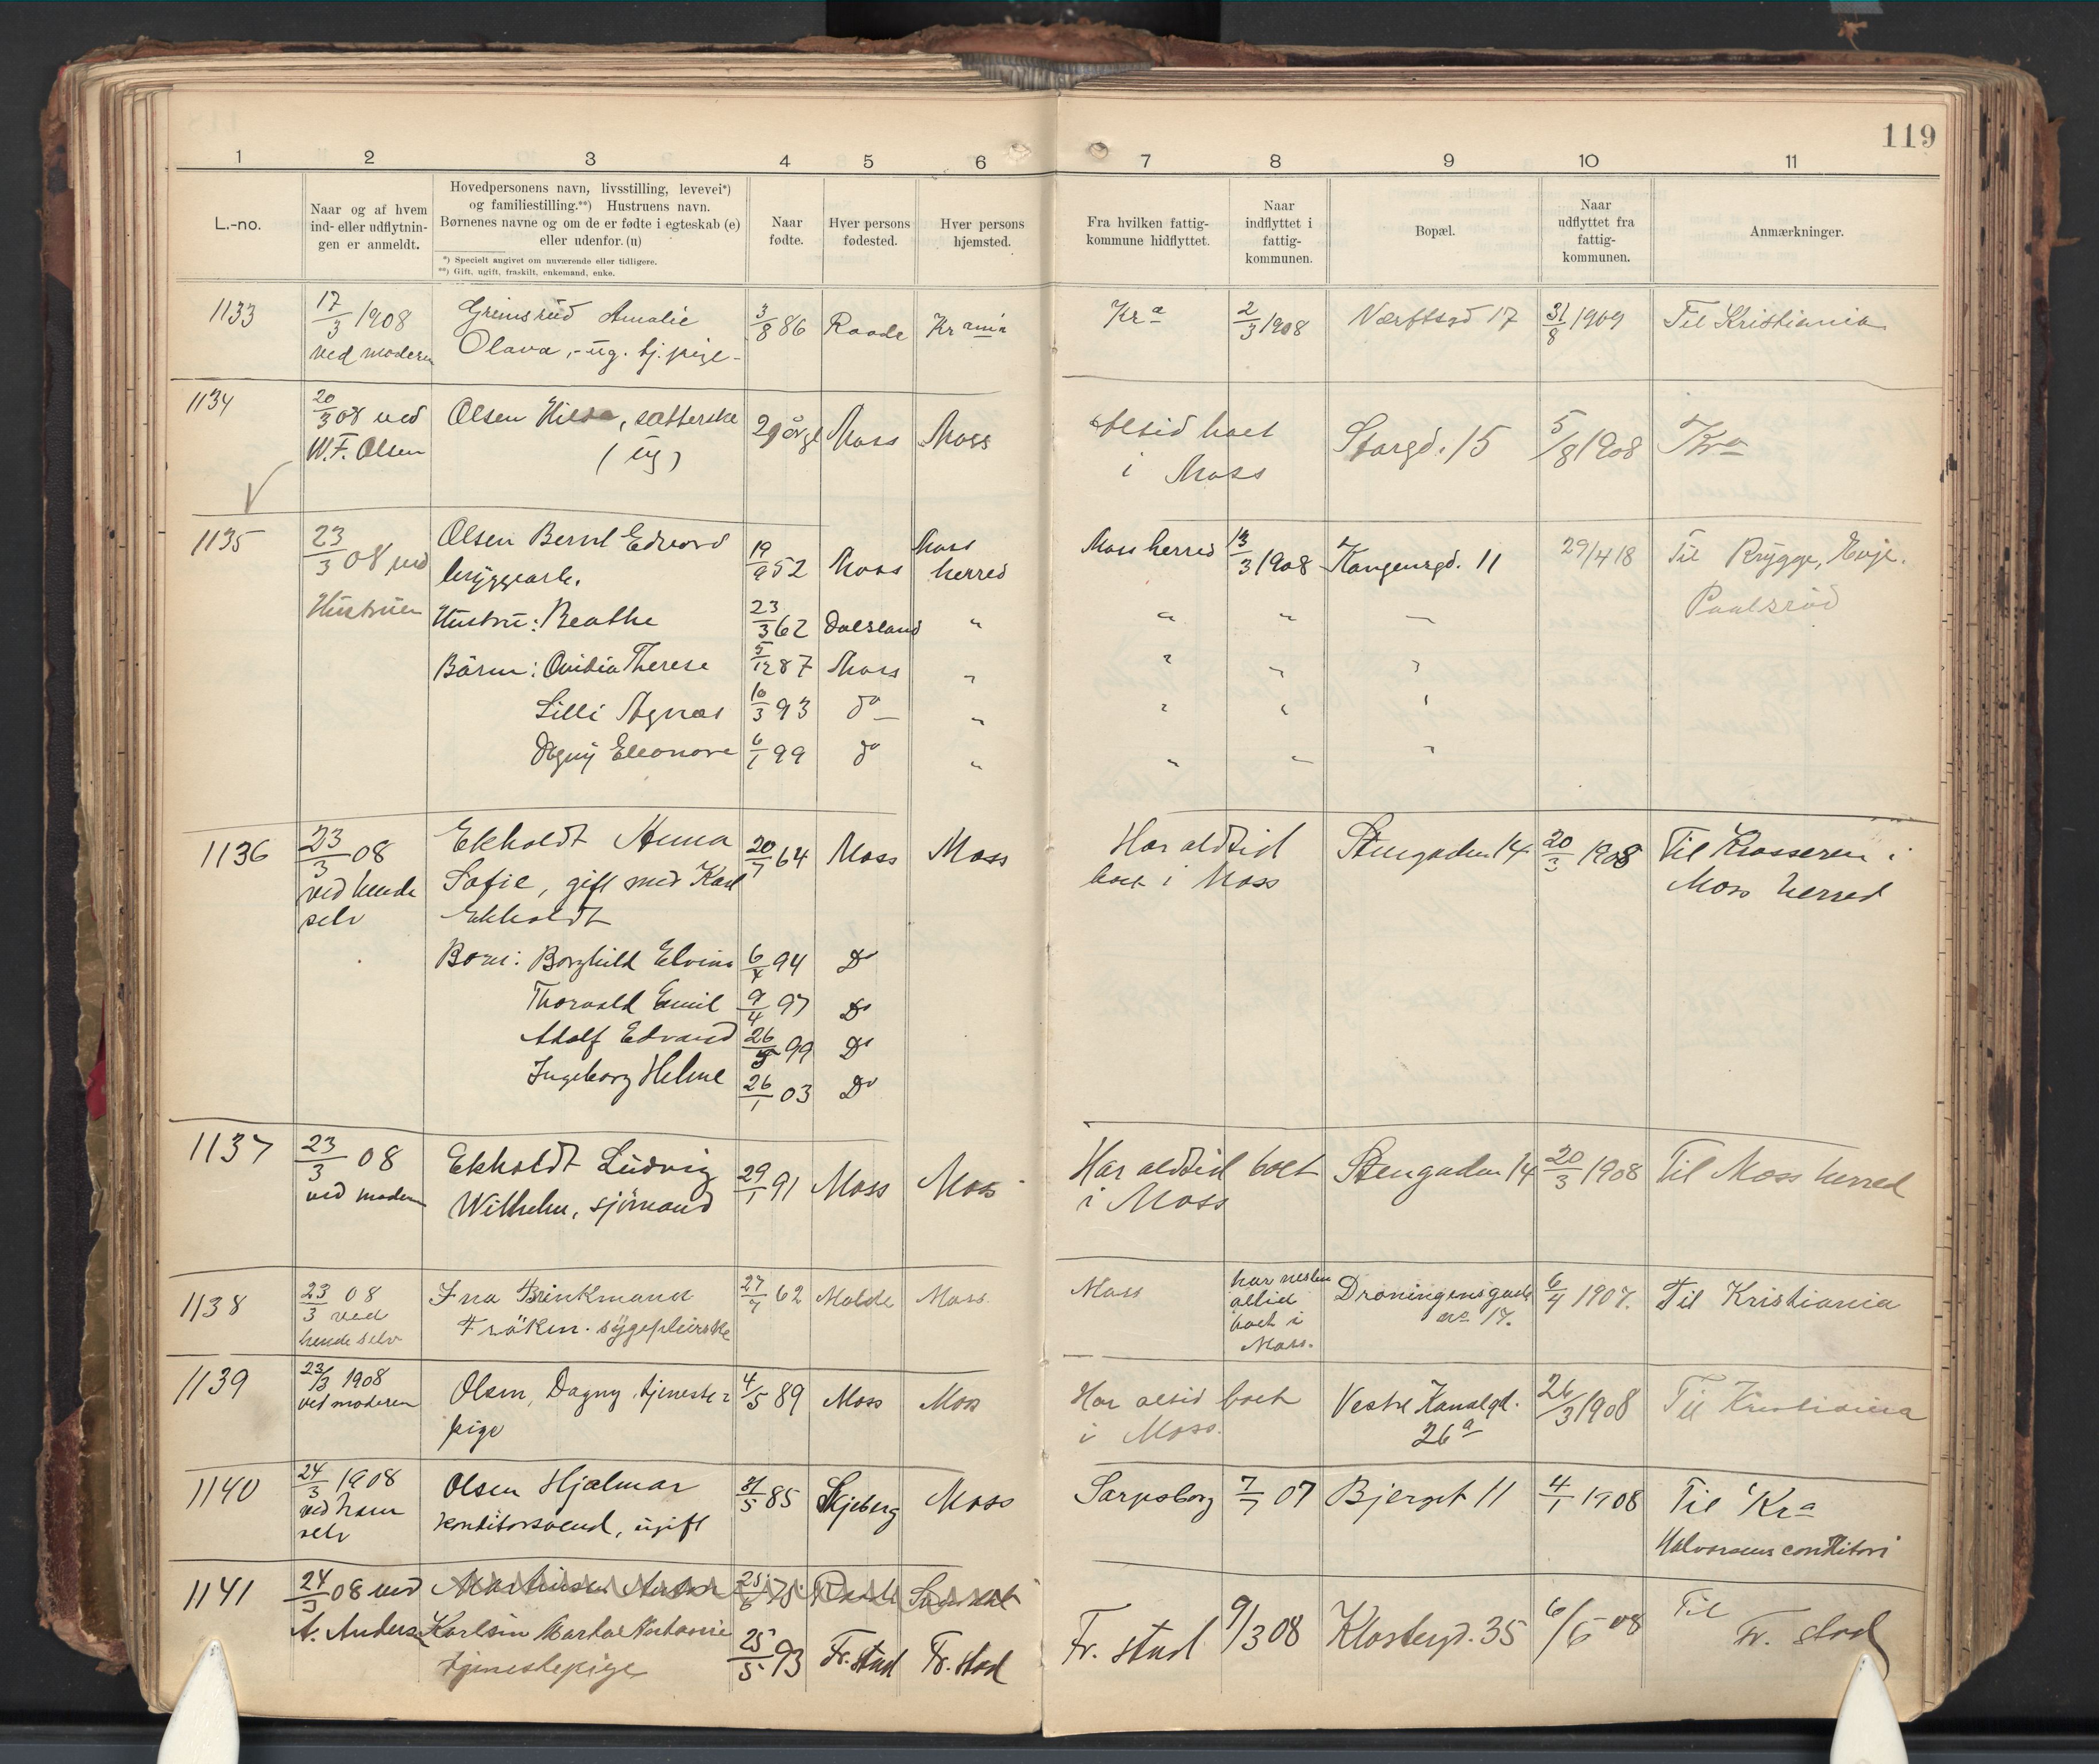 119
1 2 3 4 5 6 7 8 9 10 11
L.-no.
Naar og af hvem
ind- eller udflytnin-
gen er anmeldt.
Hovedpersonens navn, livsstilling, levevei*)
og familiestilling.**) Hustruens navn.
Børnenes navne og om de er fødte i egteskab (e)
eller udenfor. (u)
*) Specielt angivet om nuværende eller tidligere.
**) Gift, ugift, fraskilt, enkemand, enke.
Naar
fødte.
Hver persons
fødested.
Hver persons
hjemsted.
Fra hvilken fattig-
kommune hidflyttet.
Naar
indflyttet i
fattig-
kommunen.
Bopæl.
Naar
udflyttet fra
fattig-
kommunen.
Anmærkninger.
1133 17/3 1908 Grimsrud Amalie 3/8 86 Raade Krania Kra 2/3 1908 Værftsgd 17 31/8 1909 Til Kristiania
ved moderen Olava, ug. tj. pige
1134 20/3 08 ved Olsen Hilda, sætterske 29 år gl Moss Moss altid boet Storgd. 15 5/8 1908 Kra
W. F. Olsen (ug) i Moss
1135 23/3 08 ved Olsen Bernt Edvard 19/9 52 Moss Moss herred Moss herred 13/3 1908 Kongensgd. 11 29/4 18 Til Rygge, Evje.
Hustruen bryggearb. Paulsrød
Hustru: Beathe 23/3 62 Dalsland " " " —
Börn: Ovidia Therese 5/12 87 Moss " " " "
Lilli Agnes 10/3 93 do " " " "
Dagny Eleonore 6/1 99 do " " " "
1136 23/3 08 Ekholdt Anna 20/7 64 Moss Moss Har altid Stengaden 14 20/3 1908 Til Krosseren i
ved hende Sofie, gift med Karl boet i Moss Moss herred
selv Ekholdt
Born: Borghild Elvine 6/4 94 Do
Thorvald Emil 9/4 97 Do
Adolf Edvard 26/5 99 Do
Ingeborg Helene 26/1 03 Do
1137 23/3 08 Ekholdt Ludvig 29/1 91 Moss Moss Har altid boet Stengaden 14 20/3 1908 Til Moss herred
ved moderen Wilhelm, sjömand i Moss
1138 23/3 08 Ina Brinkmand 27/7 62 Molde Moss. Moss har nesten Droningensgade 6/4 1907. Til Kristiania
ved Fröken. sygepleierske altid no 17.
hende selv boet i
Moss.
1139 23/3 1908 Olsen, Dagny, tjeneste- 4/5 89 Moss Moss Har altid boet Vestre Kanalgd. 26/3 1908 Til Kristiania
ved moderen pige i Moss. 26a
1140 24/3 1908 Olsen Hjalmar 31/5 85 Skjeberg Moss Sarpsborg 7/7 07 Bjerget 11 4/1 1908 Til Kra
ved ham konditorsvend, ugift Halvorsens conditori
selv
1141 24/3 08 ved
A. Andersen Karlsen Marta Antonie 25/5 93 Fr.stad Fr.stad Fr.stad 9/3 08 Klostergd. 35 6/5 08 Til
tjenestepige Fr. stad